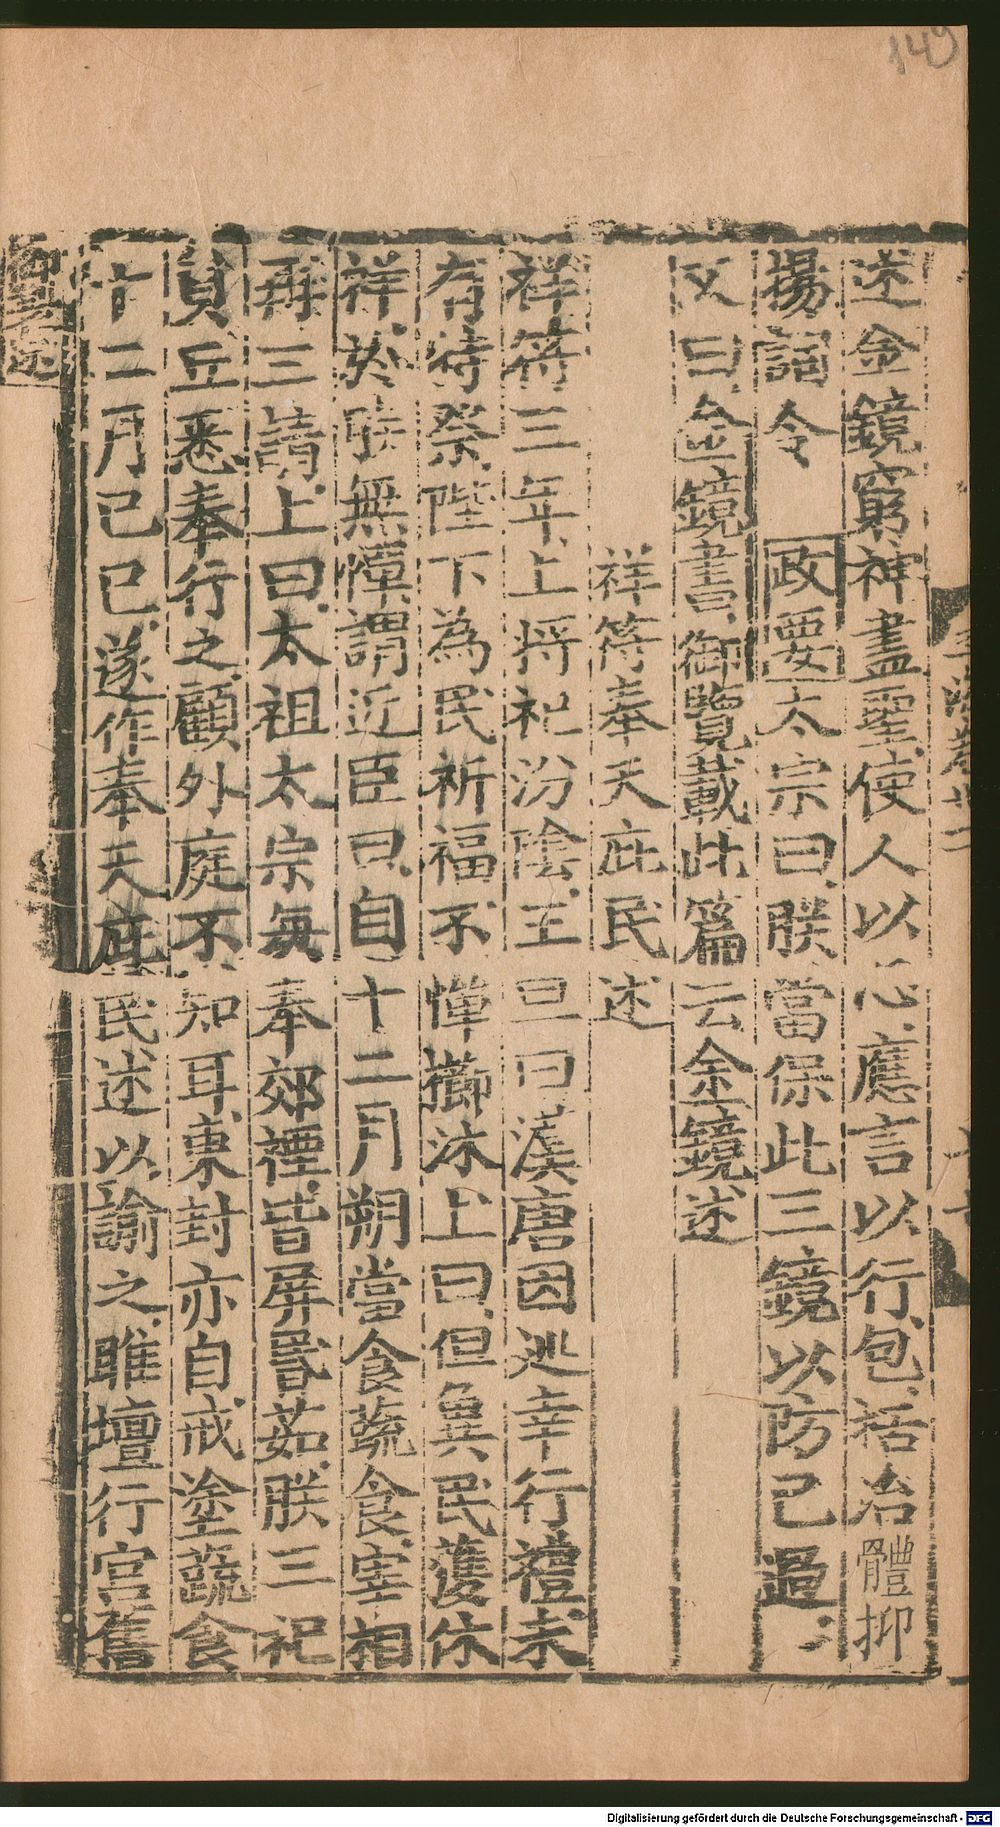 149
述金鏡窮神盡聖使人以心應言以行包括治體抑
揚詞令 政要太宗曰朕當保此三鏡以防己過
又曰金鏡書御覽載此篇云金鏡述
祥符奉天庇民述
祥符三年上將祀汾陰王旦曰漢唐因巡幸行禮未
有特祭陛下為民祈福不憚櫛沐上曰但冀民獲休
祥於朕無憚謂近臣曰自十二月朔當食蔬食宰相
再三請上曰太祖太宗每奉郊禋皆屏葷茹朕三祀
員丘悉奉行之顧外庭不知耳東封亦自戒塗蔬食
十二月己巳遂作奉天庇民述以諭之雎壇行宮舊
Digitalisierung gefördert durch die Deutsche Forschungsgemeinschaft - DFG